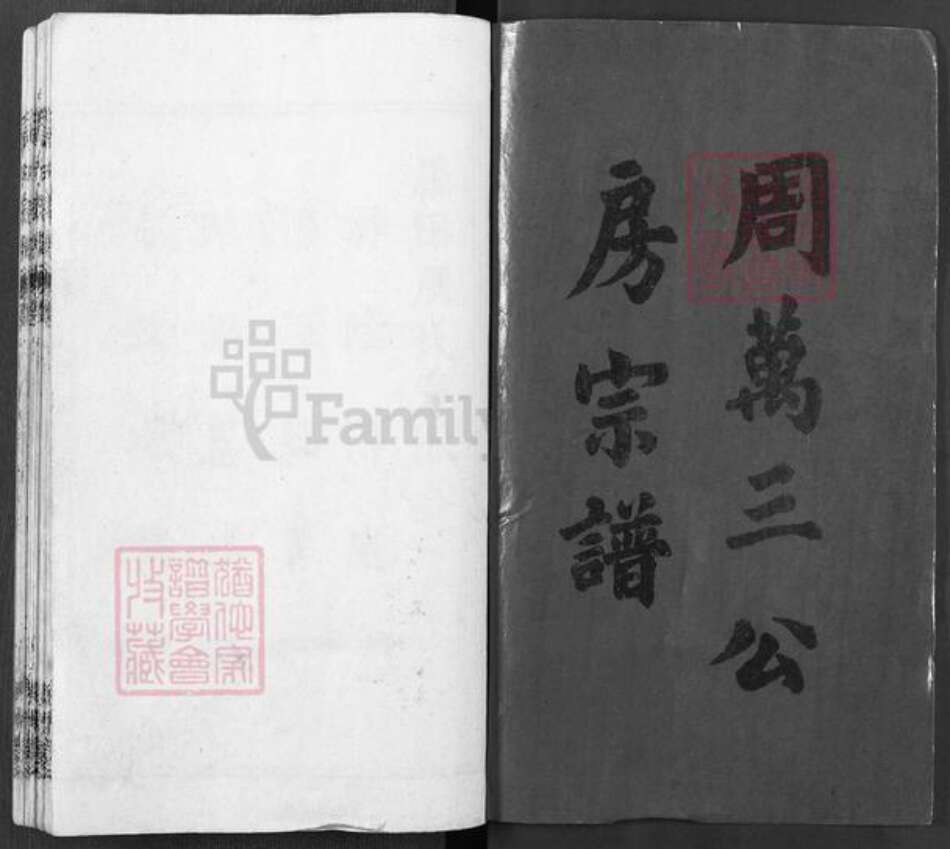 周萬三公
房宗譜
猶他家
譜學會
收藏
Family